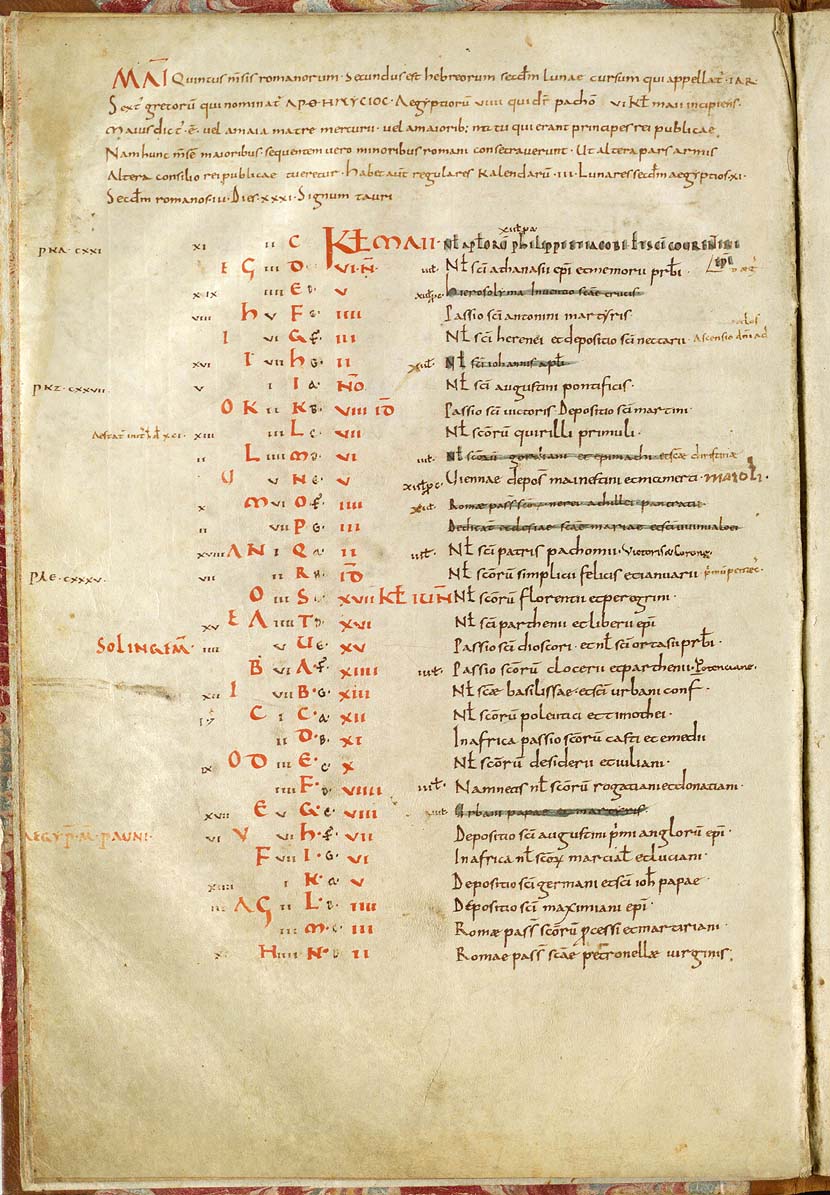 MAI Quintus msis romanorum · Secundus est hebreorum secdm lunae cursum qui appellat · IAR ·
Sext gretorū qui nominat ΑΡΘΗΜΥCΙΟC · Aegyptiorū VIIII qui dr pachō VI KL maii incipiens ·
Maius dict ē vel amaia matre mercurii · vel amaiorib; natu qui erant principes rei publicae
Nam hunc msē maioribus · sequentem uero minoribus romani consecraverunt · Ut altera pars armis
Altera consilio rei publicae tueretur · Habet aut regulares Kalendarū · III · Lunares secdm aegyptios · XI ·
Secdm romanos · IU · Dies · XXXI · Signum tauri
PKA · CXXI XI II C KL MAII · NL aptorū philippi et iacobi
E G III D · VI · N̄ · NL sci athanasii epi et memorii prbi ·
XIX IIII E V hierosolyma Inventio scae crucis
VIII h V F IIII Passio sci antonini martyris
I VI G III NL sci herenei et depositio sci nectarii · Ascensio dni ad
XVI I VII h II NL sci iohannis apli
PKZ · CXXVII · V I I A · NO NL sci augustini pontificis ·
O K II K B · VIII ID Passio sci uictoris Depositio sci martini ·
XIII III L C · VII NL scorū quirilli primuli ·
II L IIII M D · VI NL scorū gordiani et epimachi
U V N E · V Uiennae depos mamertini et mamerti · MAIOLI ·
X M VI O IIII Romae pass scor nerei achillei pancratii
II VII P G · III Dedicat ecclesiae scae mariae
XVIII A N I Q A · II NL sci patris pachomii · Victoris & Corone ·
PΛE · CXXXV · VII II R ID NL scorū simplicii felicis et ianuarii
O III S · XVII KL IUN NL scorū florentii et peregrini ·
XV E A IIII T XVI NL sci parthenii et liberii epi
SOL IN GEM · IIII V U E · XV Passio sci dioscori · et nl sci ortasii prbi ·
B VI A XIIII Passio scorū clocerii et parthenii · Potenciane ·
XII I VII B · G · XIII NL scae basilissae · et sci urbani conf ·
C I C · A · XII NL scorū polentici et timothei ·
II D · B XI In africa passio scorū casti et emedii
IX O D III E · C X NL scorū desiderii et iuliani ·
IIII F VIIII Namnetis nl scorū rogatiani et donatiani ·
XVII E V G E · VIII Urbani papae et martyris
AEGYP · M · PAUNI · VI V VI h · VII Depositio sci augustini primi anglorū epi ·
F VII I · G · VI In africa nl scor martial et luciani ·
XIIII I K · A · V Depositio sci germani et sci ioh papae
A G II L · B · IIII Depositio sci maximiani epi ·
III M · C · III Romae pass scorū pcessi et martiriani ·
H IIII N · II Romae pass scae petronellae virginis ;